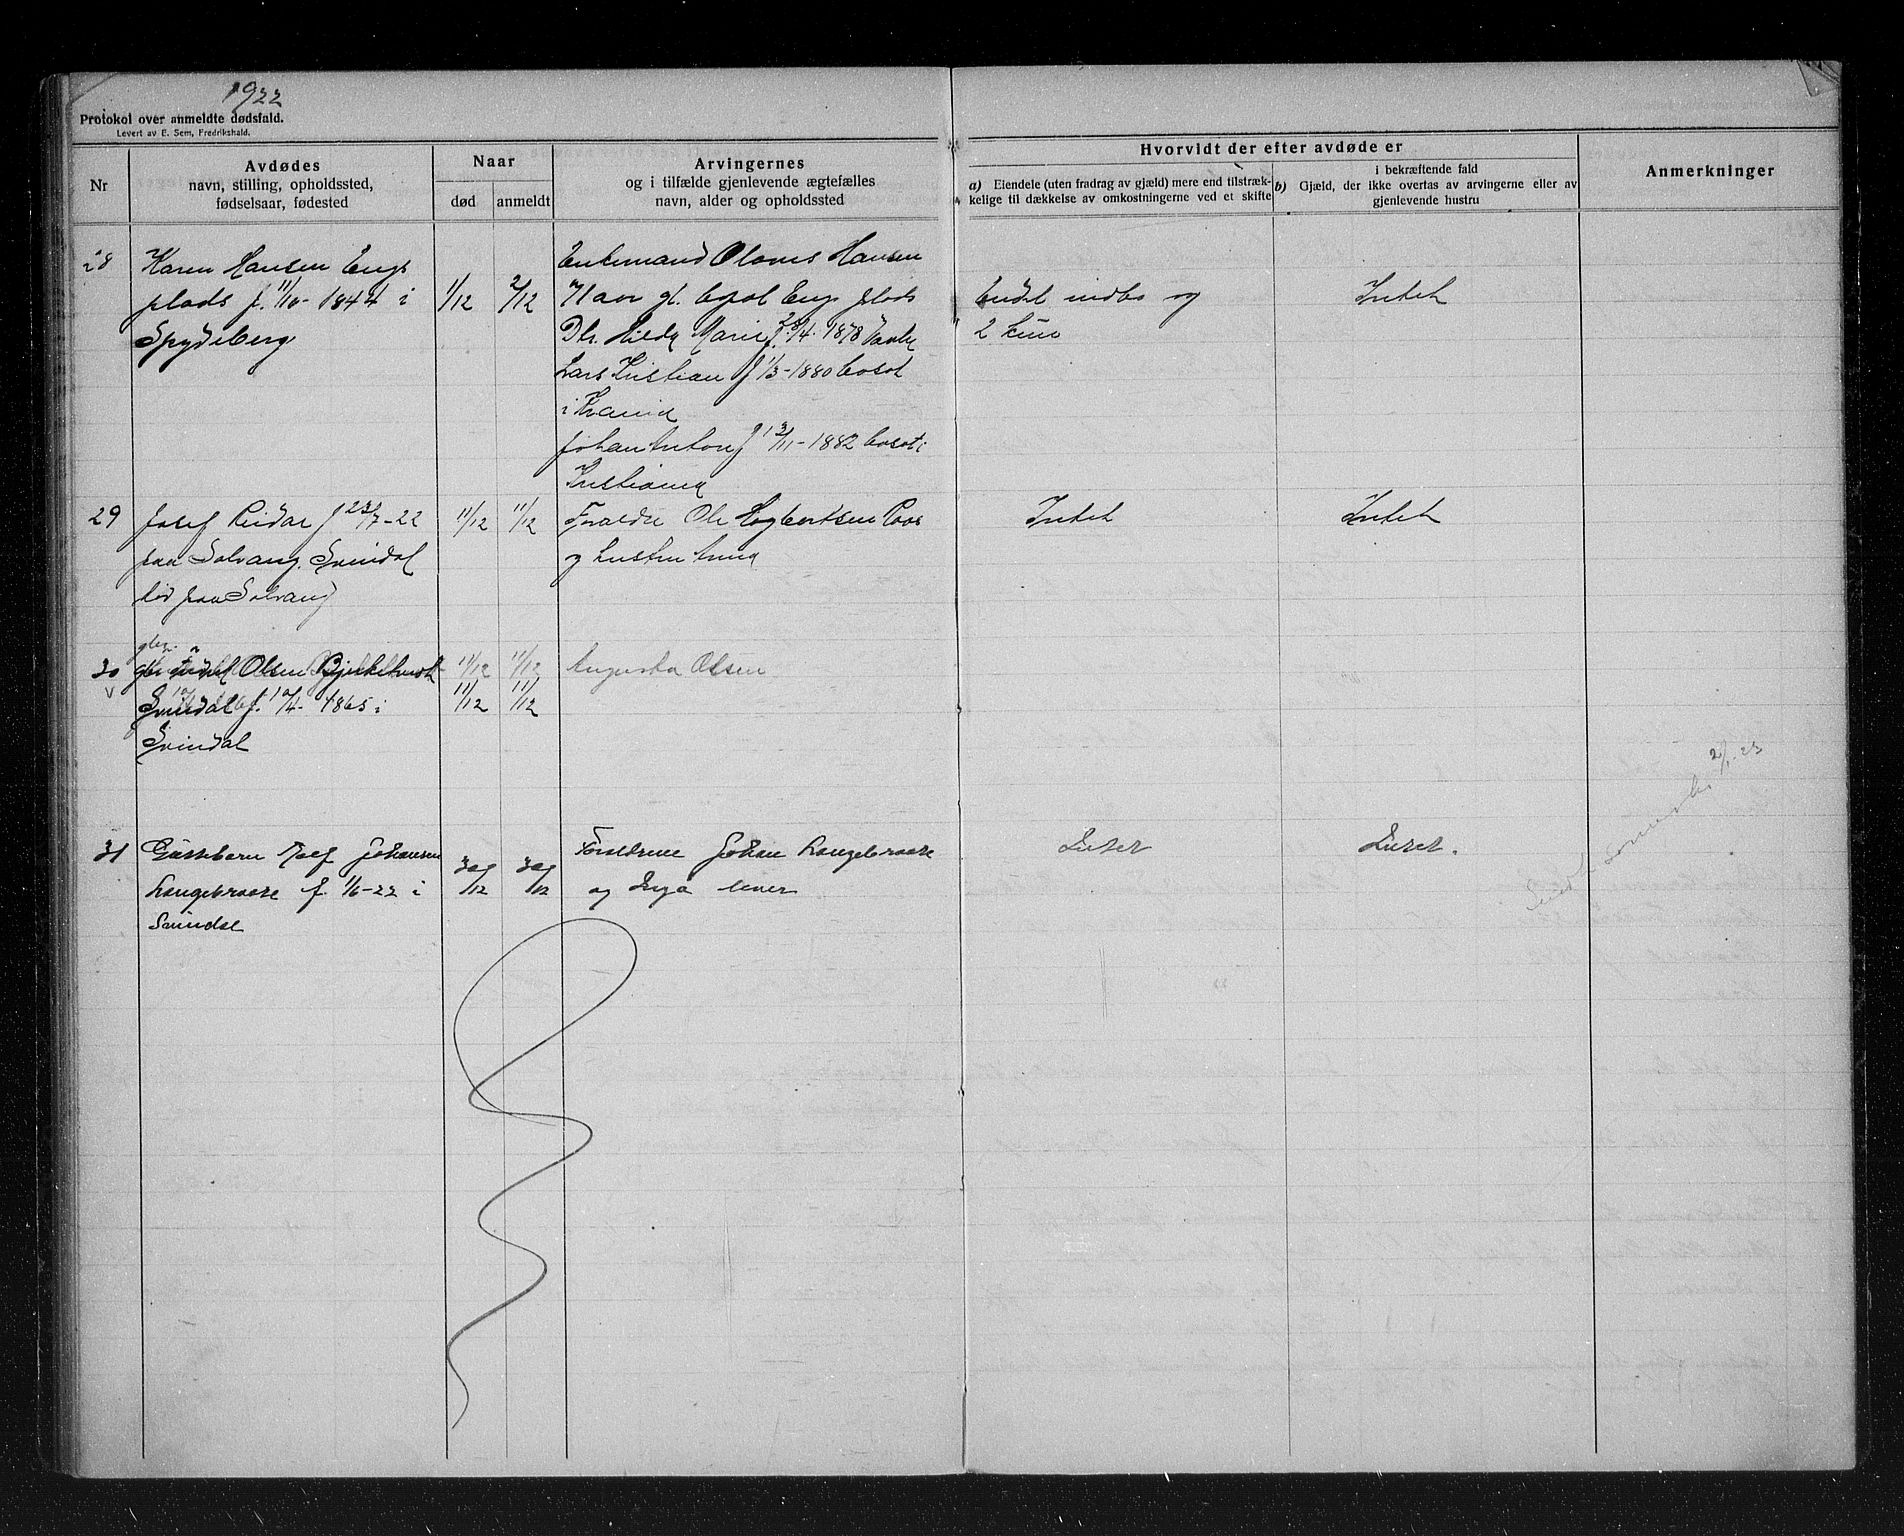 1922
Protokol over anmeldte dødsfald.
Levert av E. Sem, Fredrikshald.
Nr
Avdødes
navn, stilling, opholdssted,
fødselsaar, fødested
Naar
død
anmeldt
Arvingernes
og i tilfælde gjenlevende ægtefælles
navn, alder og opholdssted
Hvorvidt der efter avdøde er
a) Eiendele (uten fradrag av gjæld) mere end tilstræk-
kelige til dækkelse av omkostningerne ved et skifte
i bekræftende fald
b) Gjæld, der ikke overtas av arvingerne eller av
gjenlevende hustru
Anmerkninger
28
Karen Hansen Engs
plads f. 11/10 - 1844 i
Spydeberg
1/12
2/12
Enkemand Olaves Hansen
71 aar gl. bosat Engsplads
Dtr. Hilda Marie f. 1878
Lars Kristian f 1/3-1880 bosat
i Kr.ania
Johan Anton f 13/11-1882 bosat i
Kristiania
Endel indbo og
2 kuer
Intet
29
Josef Reidar f 23/7-22
paa Solvang. Svindal
død paa Solvang
11/12
11/12
Forældre Ole
og hustru Anna
Intet
Intet
30
Olsen
Svindal f. 1865 i
Svindal
11/12
11/12
11/12
11/12
Augusta Olsen
31
Rolf Johansen
Langebraate f. 1/6-22 i
Svindal
30/12
30/12
Forældrene Johan Langebraate
og Inga lever
Intet
Intet.
2/1-23